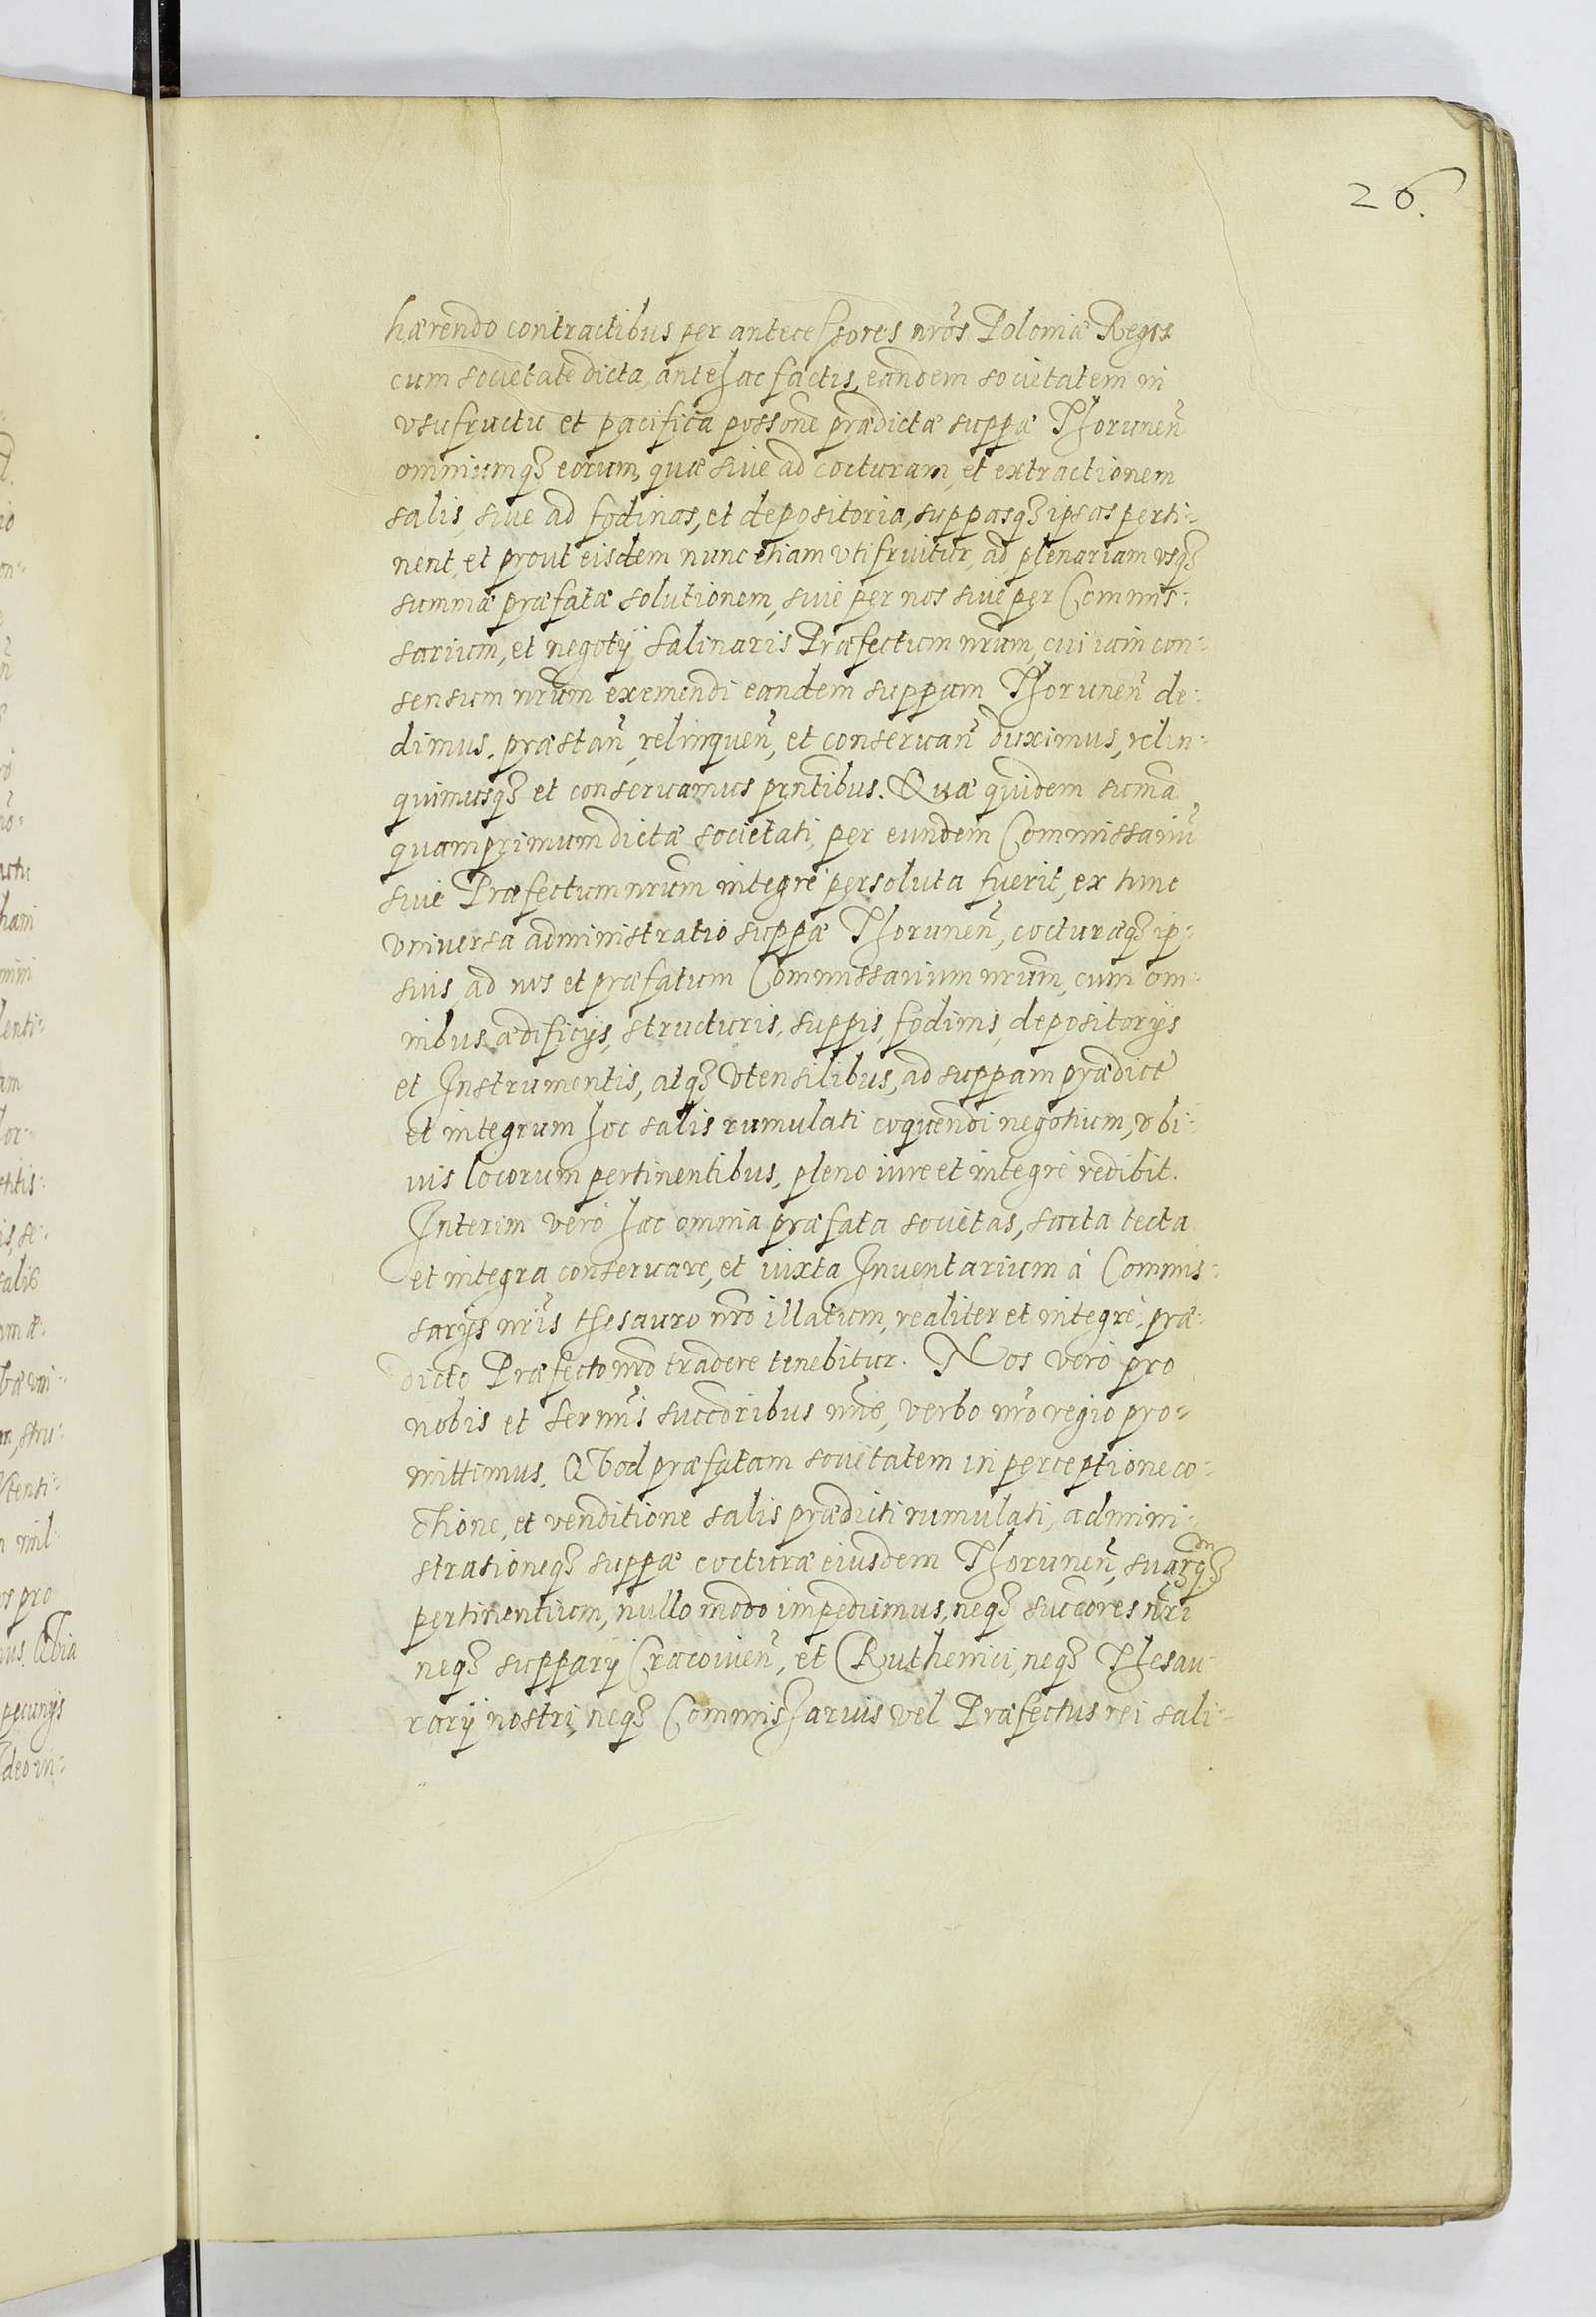 26.
hærendo contractibus per antecessores nr̃os Poloniæ Reges
cum societate dicta, antehac factis, eandem societatem in
vsufructu et pacifica possone prædictæ suppæ Thorunen̄
omniumqȝ eorum, quæ siue ad cocturam, et extractionem
salis, siue ad fodinas, et depositoria, suppasqȝ ipsas perti-
nent, et prout eisdem nunc etiam vti fruitur, ad plenariam vsqȝ
summæ præfatæ solutionem, siue per nos siue per Commis-
sarium, et negotij Salinaris Præfectum nrũm, cui iam con-
sensum nrũm exemendi eandem suppam Thorunen̄ de-
dimus. præstan̄, relinquen̄, et conseruan̄ duximus, relin-
quimusqȝ et conseruamus pr̃ntibus. Quæ quidem sum̃a
quamprimum dictæ societati, per eundem Commissariũ
siue Præfectum nrũm integrè persoluta fuerit, ex tunc
vniuersa administratio suppæ Thorunen̄, cocturæqȝ ip-
sius, ad nos et præfatum Commissarium nrũm, cum om-
nibus ædificijs, structuris, suppis, fodinis, depositorijs
et Instrumentis, atqȝ vtensilibus, ad suppam prædict̃
et integrum hoc salis rumulati coquendi negotium, vbi-
uis locorum pertinentibus, pleno iure et integrè redibit.
Interim verò hæc omnia præfata societas, sarta tecta
et integra conseruare, et iuxta Inuentarium à Commis-
sarijs nr̃is thesauro nr̃o illatum, realiter et integrè, præ-
dicto Præfecto nr̃o tradere tenebitur. Nos verò pro
nobis et Sermis succoribus nr̃is, verbo nr̃o regio pro-
mittimus. Qvod præfatam societatem in perceptione co-
ctione, et venditione salis prædicti rumulati, admini-
strationeqȝ suppæ cocturæ eiusdem Thorunen̄, suarqȝ
pertinentium, nullo modo impediemus, neqȝ succores nr̃i
neqȝ supparij Cracouien̄, et Ruthenici, neqȝ Thesau-
rarij nostri, neqȝ Commissarius vel Præfectus rei sali-